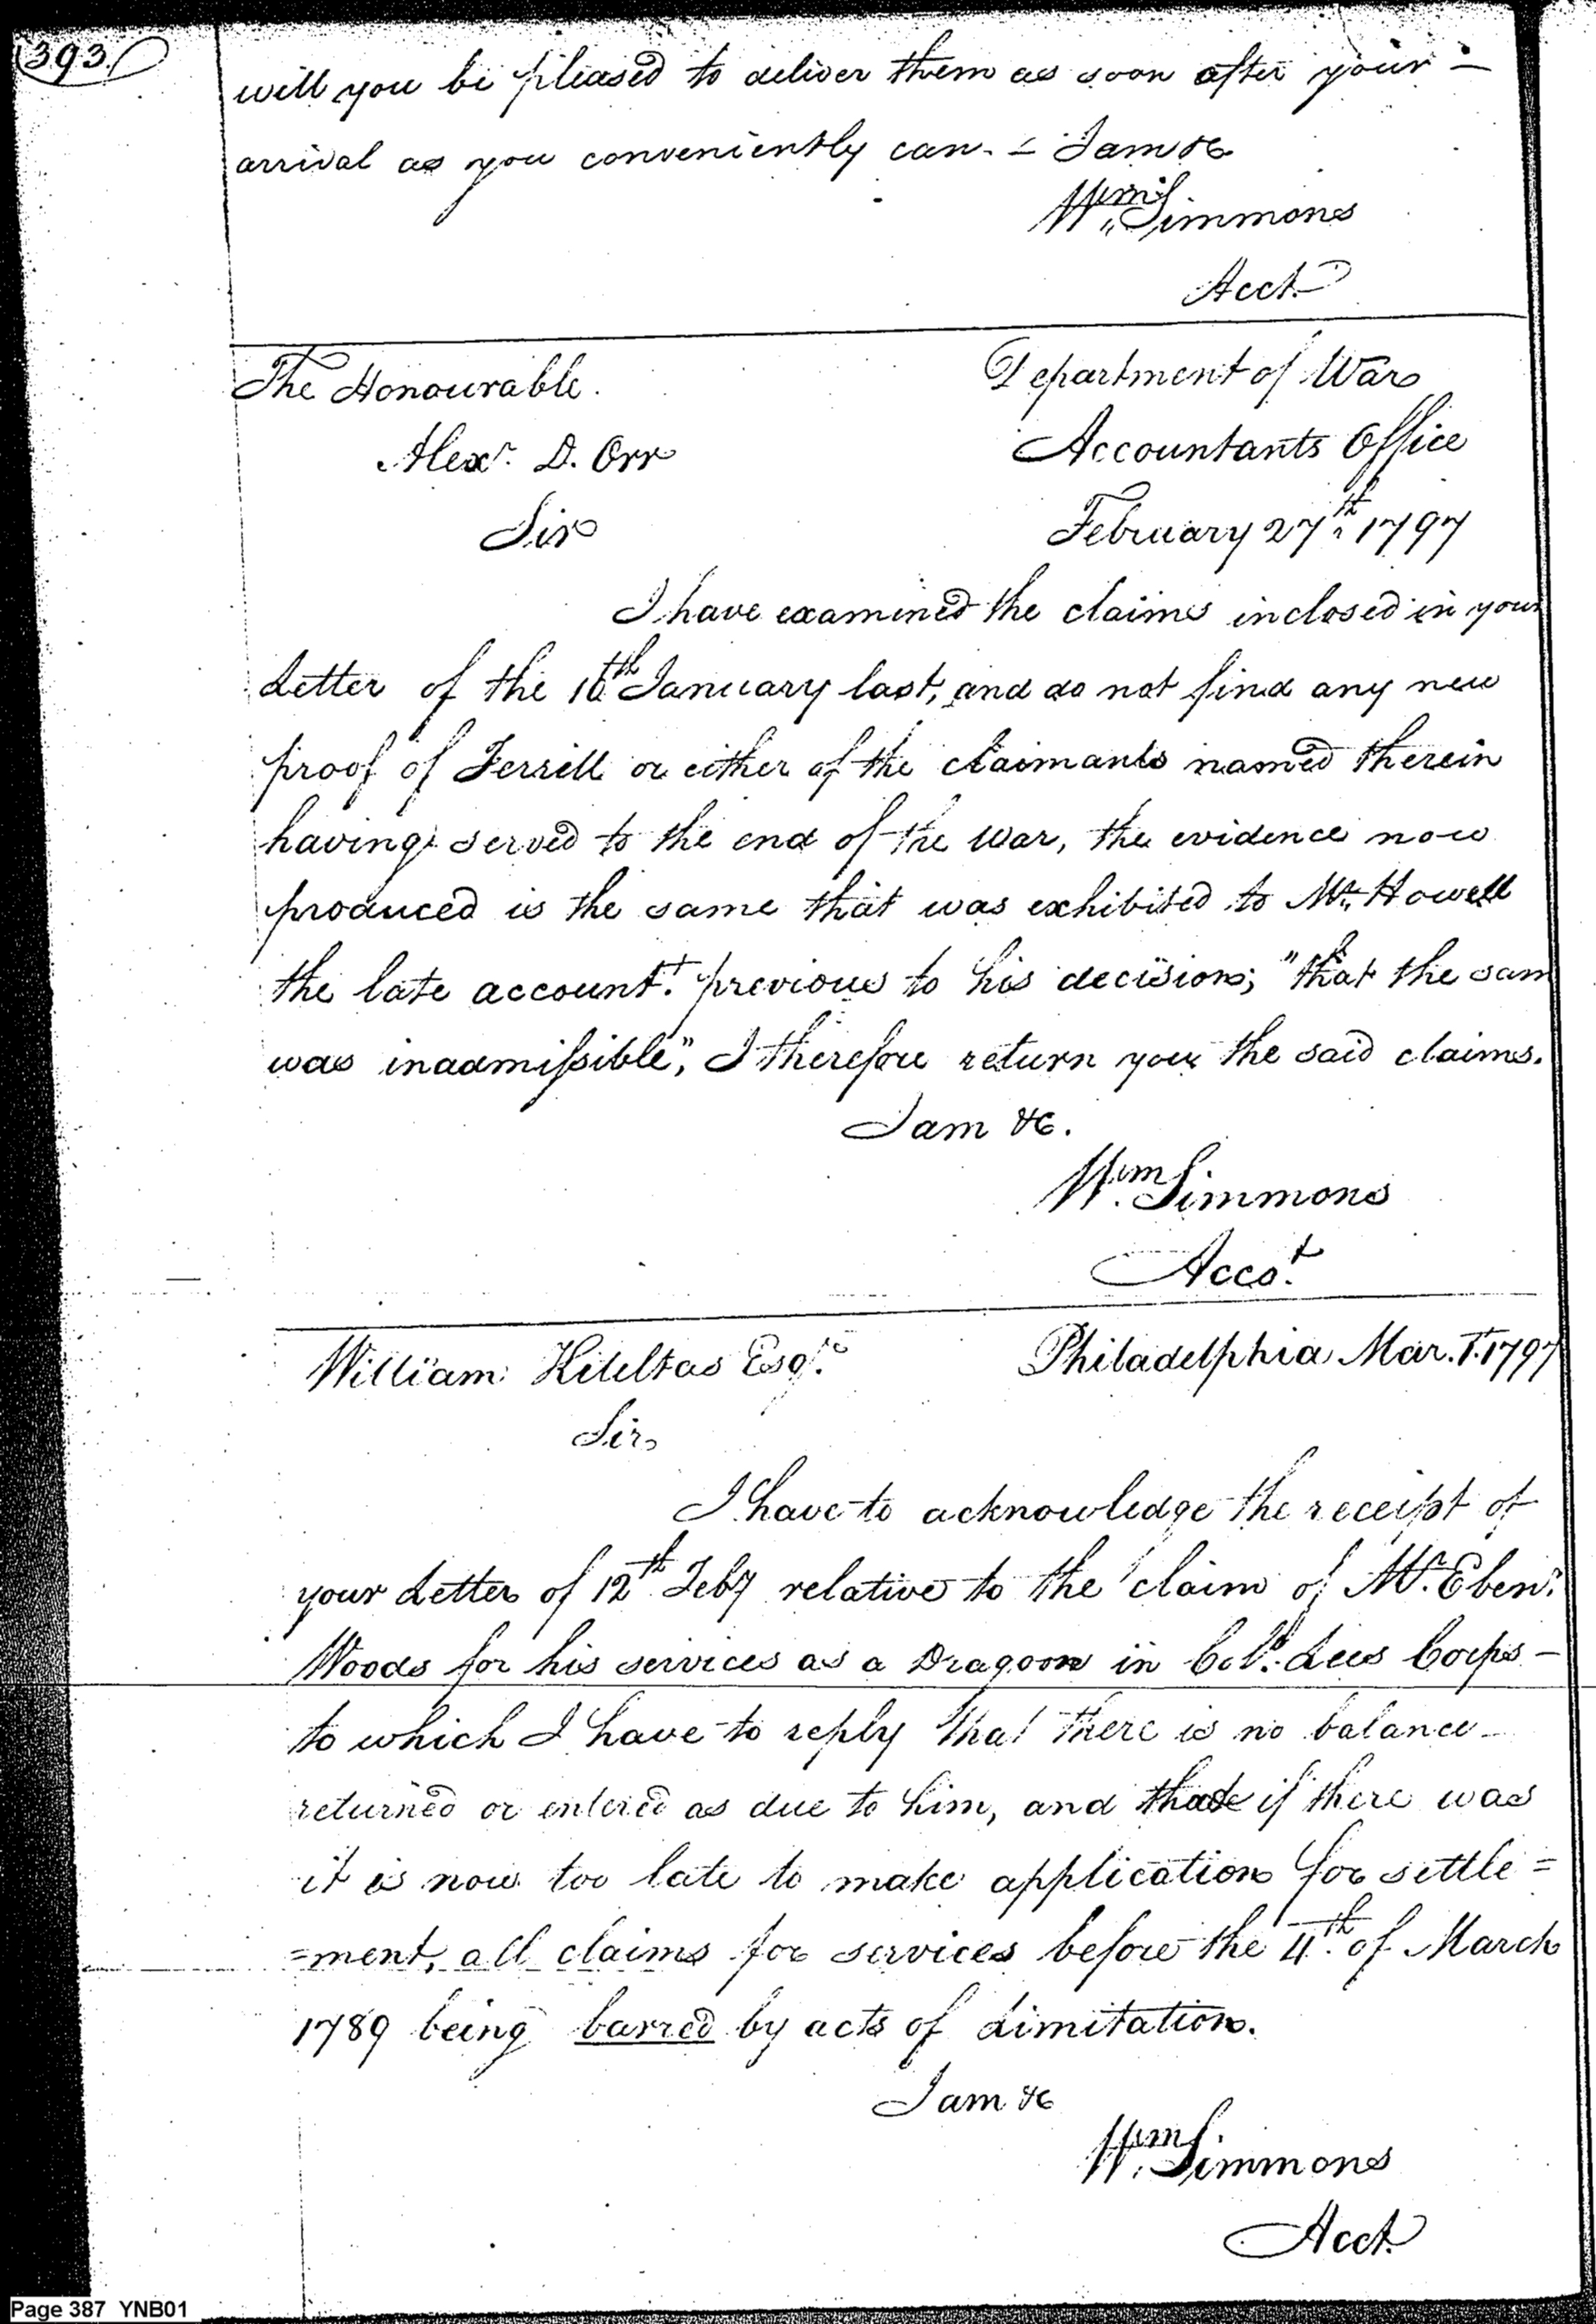 393.
will you be pleased to deliver them as soon after your —
arrival as you conveniently can. — I am &c
Wm. Simmons
Acct.
The Honourable. Department of War
Alexr. D. Orr Accountants Office
Sir February 27th. 1797
I have examined the claims inclosed in your
Letter of the 16th January last, and do not find any new
proof of Ferrill or either of the claimants named therein
having served to the end of the war, the evidence now
produced is the same that was exhibited to Mr. Howell
the late accountt. previous to his decision; "that the sam
was inadmissible", I therefore return you the said claims.
I am &c.
Wm. Simmons
Accot.
William Kiteltas Esqr. Philadelphia Mar. 1t. 1797
Sir
I have to acknowledge the receipt of
your Letter of 12th Feby relative to the claim of Mr. Ebenr.
Woods for his services as a Dragoon in Col. Lees Corps —
to which I have to reply that there is no balance
returned or entered as due to him, and that if there was
it is now too late to make application for settle=
=ment, all claims for services before the 4th. of March
1789 being barred by acts of Limitation.
I am &c
Wm. Simmons
Acct.
Page 387 YNB01